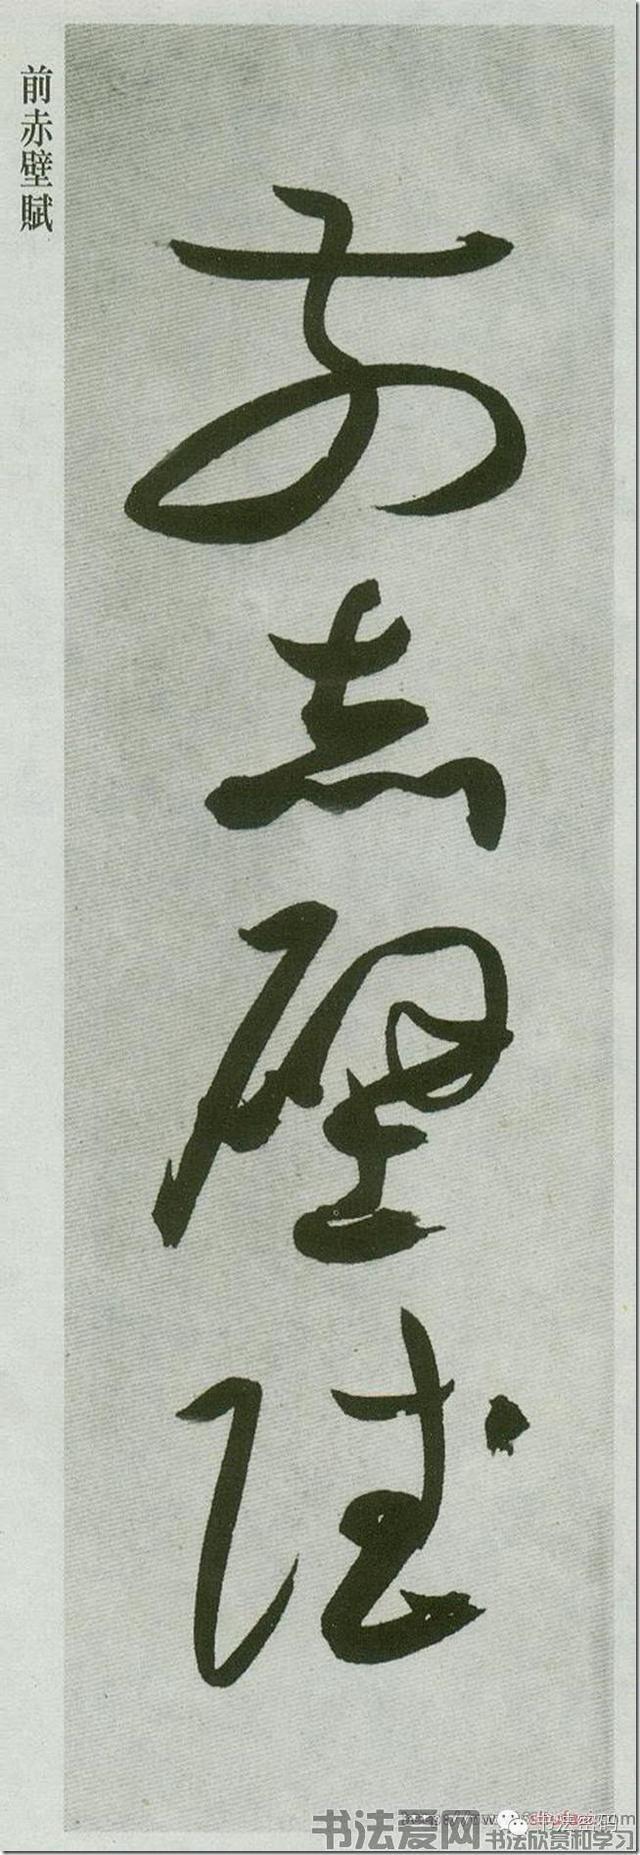 前赤壁賦
前赤壁賦
书法爱网
书法欣赏和学习